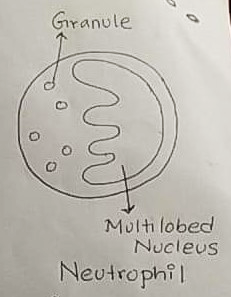 Granule
Multilobed
Nucleus
Neutrophil